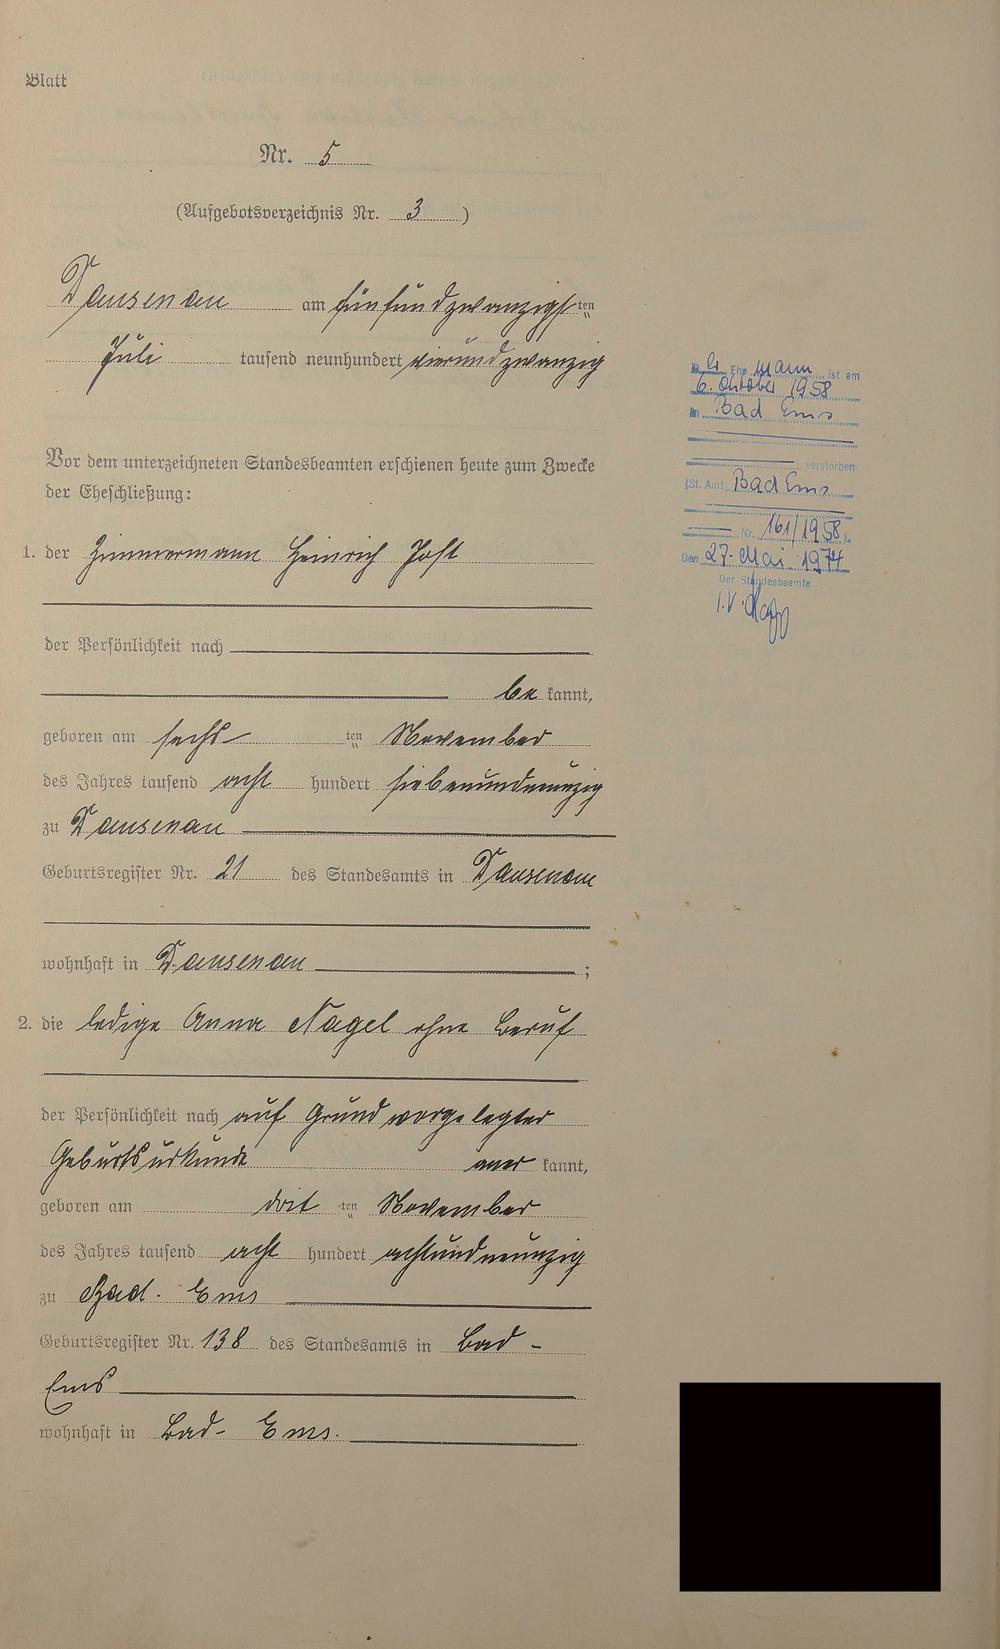 Blatt
Nr. 5
(Aufgebotsverzeichnis Nr. 3)
Dausenau am fünfundzwanzigsten
Juli tausend neunhundert vierundzwanzig
Vor dem unterzeichneten Standesbeamten erschienen heute zum Zwecke
der Eheschließung:
1. der Zimmermann Heinrich Jost
der Persönlichkeit nach
be kannt,
geboren am sechs ten November
des Jahres tausend acht hundert siebenundneunzig
zu Dausenau
Geburtsregister Nr. 21 des Standesamts in Dausenau
wohnhaft in Dausenau ;
2. die ledige Anna Nagel ohne Beruf
der Persönlichkeit nach auf Grund vorgelegter
Geburtsurkunde aner kannt,
geboren am drit ten November
des Jahres tausend acht hundert achtundneunzig
zu Bad. Ems
Geburtsregister Nr. 138 des Standesamts in Bad-
Ems
wohnhaft in Bad- Ems.
Der Ehemann ist am
6. Oktober 1958
in Bad Ems
verstorben
(St. Amt Bad Ems
Nr. 161/1958).
Den 27. Mai 1974
Der Standesbeamte
I.V.